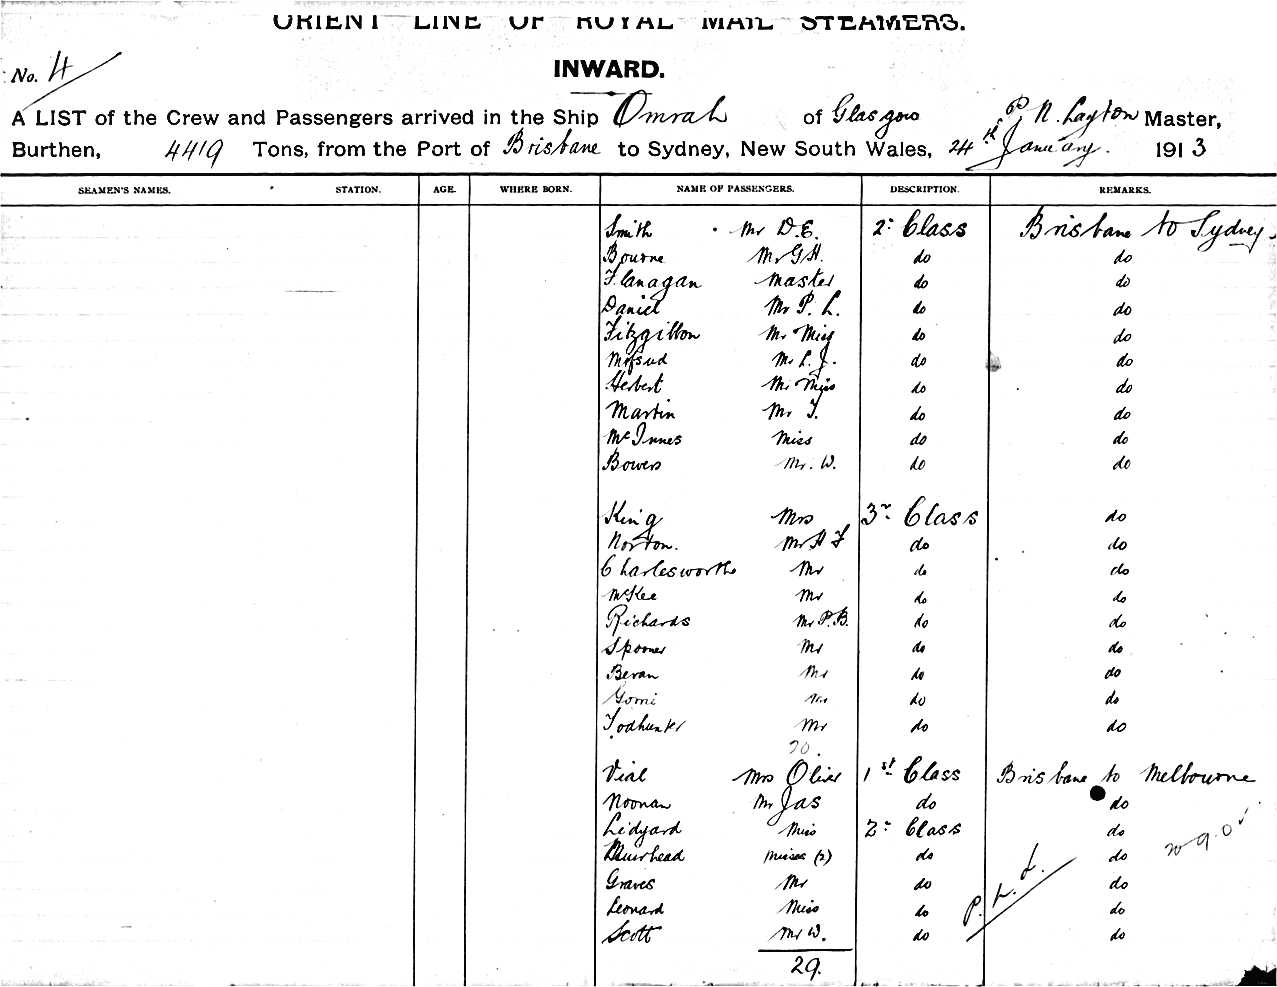 ORIENT LINE OF ROYAL MAIL STEAMERS.
No. 4
INWARD.
A LIST of the Crew and Passengers arrived in the Ship Omrah of Glasgow P N. Layton Master,
Burthen, 4419 Tons, from the Port of Brisbane to Sydney, New South Wales, 24th January. 1913
SEAMEN'S NAMES. STATION. AGE. WHERE BORN. NAME OF PASSENGERS. DESCRIPTION. REMARKS.
Smith Mr D.E. 2: Class Brisbane to Sydney
Bourne Mr G H. do do
Flanagan Master do do
Daniel Mr P. L. do do
Fitzgibbon Mr Miss do do
Mifsud Mr L. J. do do
Herbert Mr Miss do do
Martin Mr T. do do
McInnes Miss do do
Bowers Mr. W. do do
King Mrs 3r Class do
Norton. Mr H F do do
Charlesworth Mr do do
McKee Mr do do
Richards Mr P.B. do do
Spooner Mr do do
Bevan Mr do do
Gomi Mr do do
Todhunter Mr do do
20.
Vial Mrs Oliver 1st Class Brisbane to Melbourne
Noonan Mr Jas do do
Lidgard Miss 2: Class do
Muirhead Misses (2) do do
Graves Mr do do
Leonard Miss do do
Scott Mr W. do do
29.